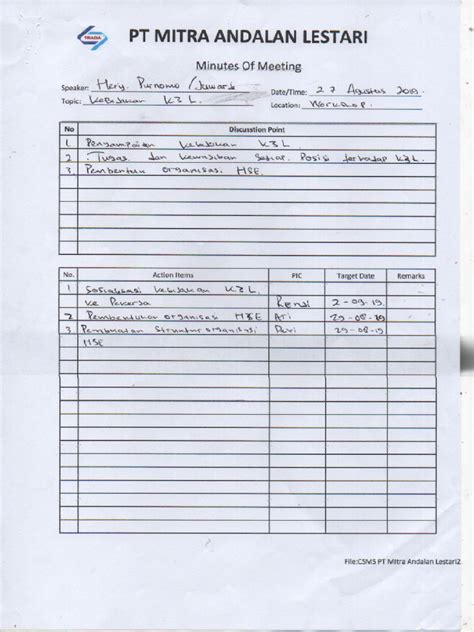 TRADA
PT MITRA ANDALAN LESTARI
Minutes Of Meeting
Speaker: Hery Purnomo / Juwardi Date/Time: 27 Agustus 2019.
Topic: Kebijakan K3L. Location: Workshop.
No Discussion Point
1 Penyampaian Kebijakan K3L
2 Tugas dan Kewajiban Setiap Posisi terhadap K3L.
3 Pembentukan organisasi HSE.
No. Action Items PIC Target Date Remarks
1 Sosialisasi Kebijakan K3L.
Ke Pekerja 2-09-19.
2 Pembentukan organisasi HSE Ari 29-08-19
3 Pembuatan Struktur organisasi 29-08-19
HSE
File:CSMS PT Mitra Andalan Lestari2